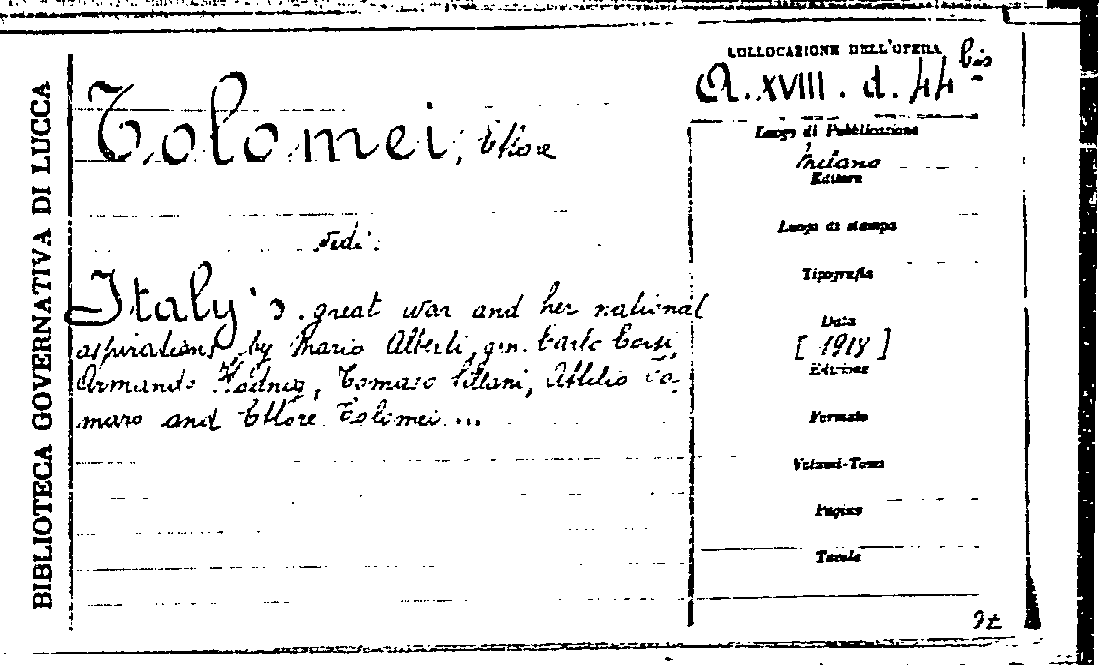 BIBLIOTECA GOVERNATIVA DI LUCCA
COLLOCAZIONE DELL'OPERA
A. XVIII. d. 44 bis
Tolomei, Ettore
Vedi:
Italy's great war and her national
aspirations, by Mario Alberti, gen. Carlo Corsi,
Armando Hodnig, Tomaso Sillani, Attilio Ta-
maro and Ettore Tolomei...
Luogo di Pubblicazione
Milano
Editore
Luogo di stampa
Tipografia
Data
[1918]
Edizione
Formato
Volumi-Tomi
Pagine
Tavole